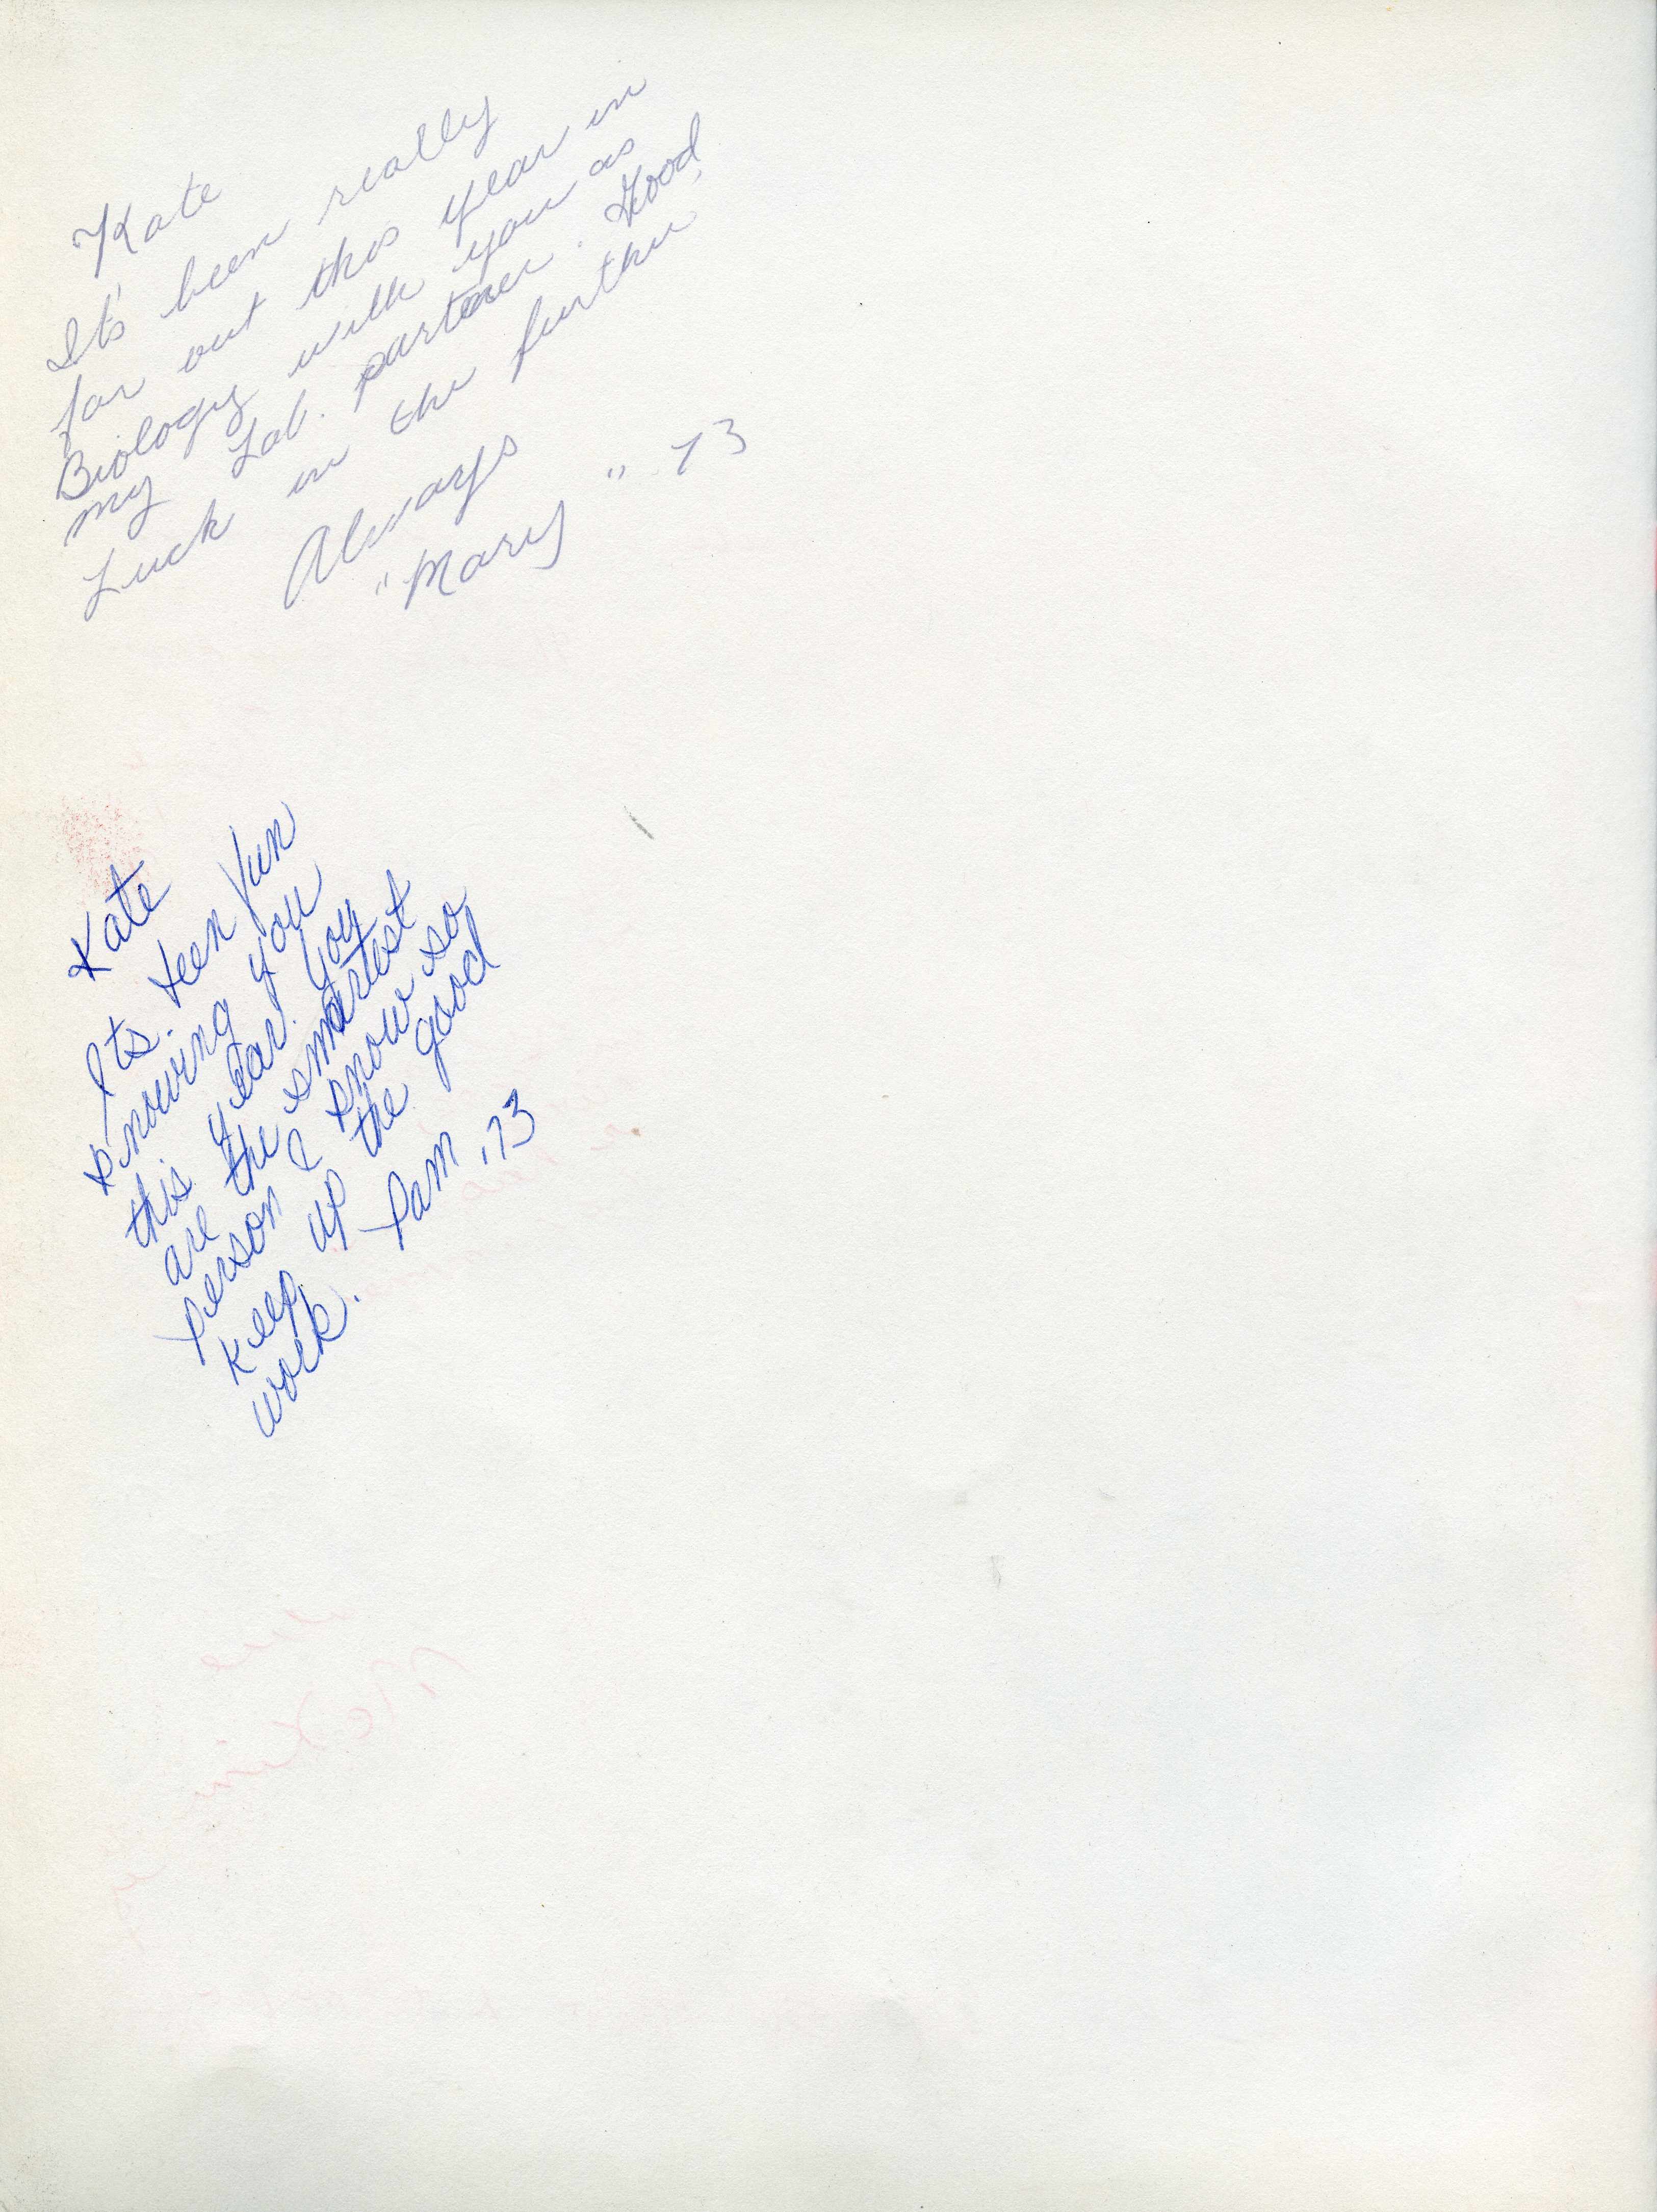 Kate
It's been really
far out this year in
Biology with you as
my Lab. partner. Good
Luck in the furthu
Always
"Mary" 73
Kate
Its been fun
knowing you
this year. You
are the smartest
person I know so
keep up the good
work.
Pam '73